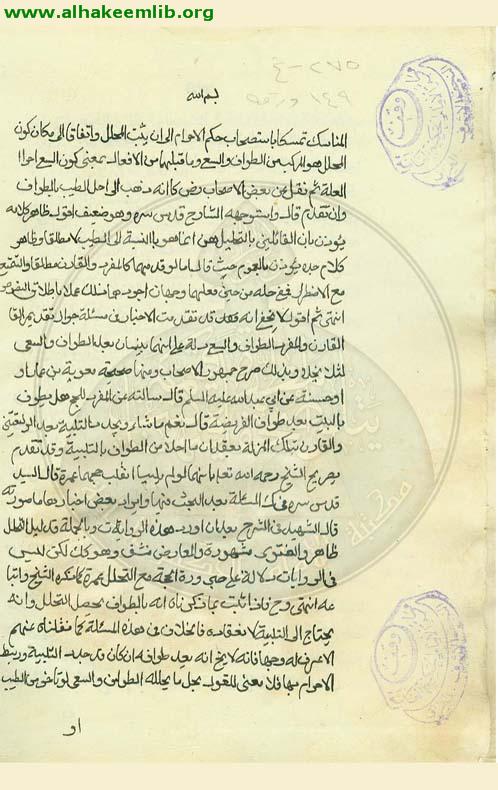 www.alhakeemlib.org
بسم الله
المناسك تمسكا باستصحاب حكم الاحرام الى ان يثبت المحلل واتفاقا الى مكان كون
المحلل هو المركب من الطواف والسعى وما قبلهما من الافعال بمعنى كون السعى اخر اجزاء
العلة ثم نقل عن بعض الاصحاب انه ذهب الى حل الطيب بالطواف
وان تقدم قال واستوجهه الشارح قدس سره وهو ضعيف اقول ظاهر كلامه
يؤذن بان القائلين بالتحليل هنا انما هو بالنسبة الى الطيب لا مطلقا وظاهر
كلام يؤذن بالعموم حيث قال اما لو قدمهما كالمفرد والقارن مطلقا والمتمتع
مع الاضطرار ففى حله من حين فعلهما وجهان اجودهما ذلك عملا باطلاق النصوص
انتهى ثم اقول لا يخفى انه قد تقدمت الاخبار فى مسئلة جواز تقديم
القارن والمفرد الطواف والسعى دالة على انهما يلبيان بعد الطواف والسعى
لئلا يحلا وبذلك صرح جمهور الاصحاب ومنها صحيحة معوية بن عمار او
حسنته عن ابى عبد الله عليه السلم قال سالته عن المفرد للحج هل يطوف
بالبيت بعد طواف الفريضة قال نعم ما شاء ويجدد التلبية بعد الركعتين
والقارن بتلك المنزلة يعقدان ما احلا من الطواف بالتلبية وقد تقدم
تصريح الشيخ رحمه الله تعا بانهما لو لم يلبيا انقلب حجهما عمرة قال السيد
قدس سره فى المسئلة بعد البحث فيها وايراد بعض اخبارها ما صورته
قال الشهيد فى الشرح بعد ان اورد هذه الروايات وبالجملة فدليل التحلل
ظاهر والفتوى مشهورة والمعارض منتف وهو كك لكن ليس
فى الروايات دلالة على صيرورة الحجة مع التحلل عمرة كما ذكره الشيخ واتبا
عه انتهى وح فاذا ثبت بما ذكرناه انه بالطواف يحصل التحلل وانه
يحتاج الى التلبية لانعقاده فالخلاف فى هذه المسئلة كما نقلناه عنهم
لا اعرف له وجها فانه لا يخفى انه بعد طوافه ان كان قد جدد التلبية وربط
الاحرام بها فلا معنى للقول بحل ما يحلله الطواف والسعى لو تاخر من الطيب
او